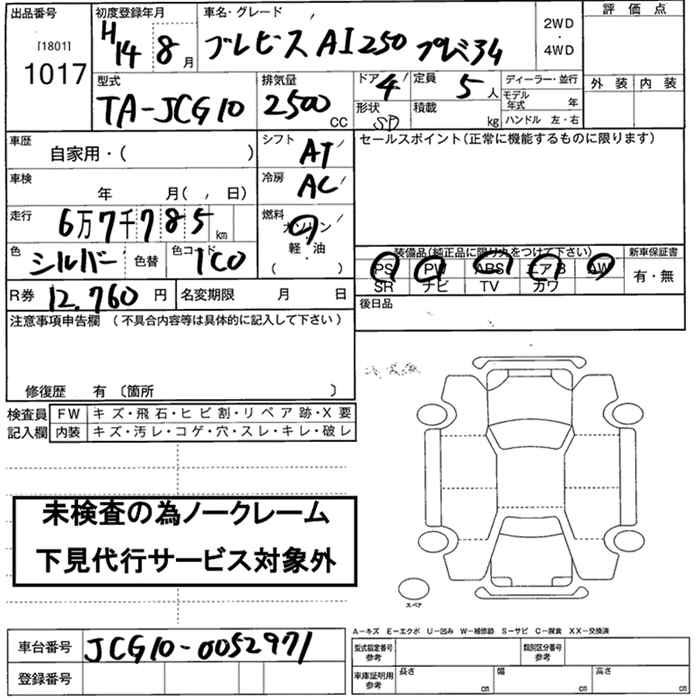 出品番号 初度登録年月 車名・グレード 2WD・4WD 評価点
[1801]
1017 H14 8月 ブレビス AI250 プレミ34
外装 内装
型式 排気量 ドア 4 定員 5人 ディーラー・並行
TA-JCG10 2500cc 形状 SD 積載 kg モデル年式 年
ハンドル 左・右
車歴 自家用・( ) シフト AT セールスポイント(正常に機能するものに限ります)
車検 年 月( , 日) 冷房 AC
走行 6万7千785km 燃料 ガソリン 軽・油 ( )
装備品(純正品に限り丸をつけて下さい) 新車保証書
色 シルバー 色替 色コード 1C0 PS PW ABS エアB AW 有・無
SR ナビ TV カワ
R券 12,760円 名変期限 月 日 後日品
注意事項申告欄 (不具合内容等は具体的に記入して下さい)
修復歴 有 〔箇所 〕
検査員記入欄 FW キズ・飛石・ヒビ割・リペア跡・X要
内装 キズ・汚レ・コゲ・穴・スレ・キレ・破レ
未検査の為ノークレーム
下見代行サービス対象外
スペア
車台番号 JCG10-0052971
登録番号
A-キズ E-エクボ U-凹み W-補修跡 S-サビ C-腐食 XX-交換済
型式指定番号 参考 類別区分番号 参考
車庫証明用 参考 長さ cm 幅 cm 高さ cm